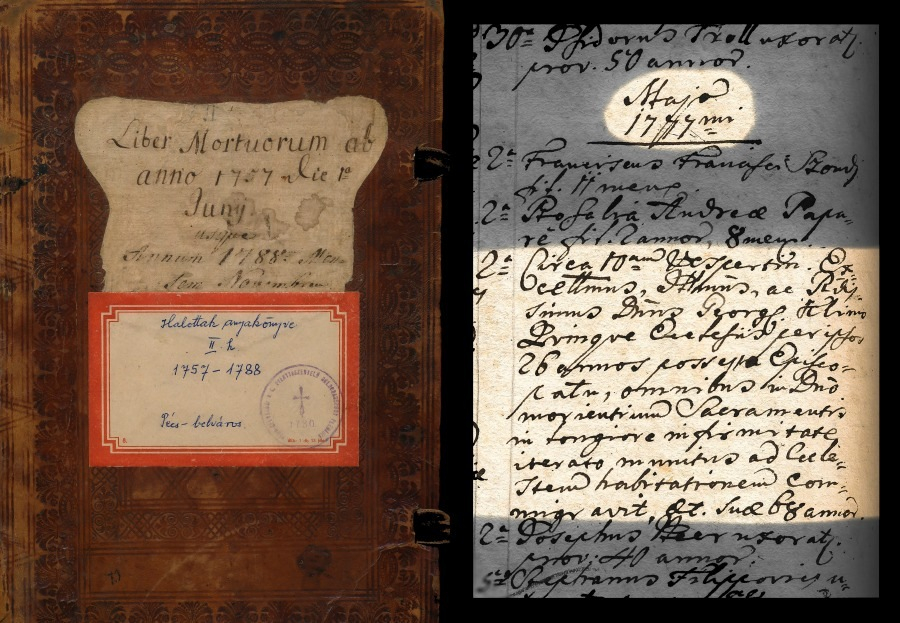 Liber Mortuorum ab
anno 1757 Die 1ª
Junÿ
usque
Annum 1788
Novembrem
Halottak anyakönyve
II. k
1757-1788
Pécs-belváros
30ª Isidorus Troll uxorat9.
prov. 50 annor.
Majo
1777mi
2ª Franciscus Francisci
fil. 11 mens.
2ª Rosalia Andreæ Papa-
re fil. 2 annor, 8 mens.
2ª Circa 10am Vespertin. Ex-
cellmus, Illmus, ac
simus Dnus Georg9
Quinque Ecclesiis per ipsos
26 annos possesso Episco-
patu, omnibus in Dno
morientium Sacramentis
in longiore infirmitate
iterato munitus ad Cœle-
stem habitationem Com-
migravit, æt. suæ 68 annor.
2ª Josephus uxorat9.
prov. 40 annor.
Stephanus